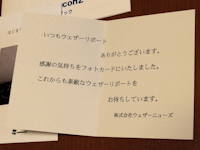 いつもウェザーリポート
ありがとうございます。
感謝の気持ちをフォトカードにいたしました。
これからも素敵なウェザーリポートを
お待ちしています。
株式会社ウェザーニューズ